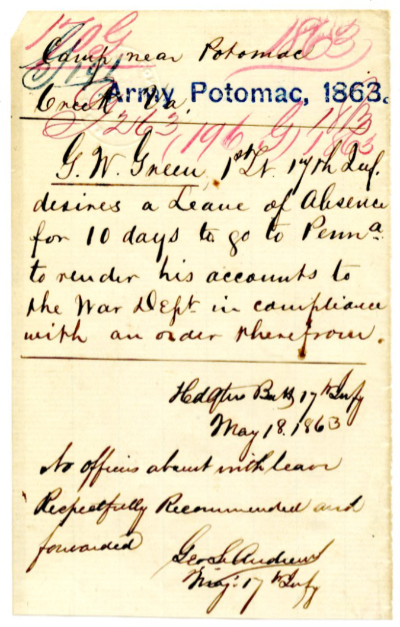 1863
Camp near Potomac
Creek Va
Army Potomac, 1863.
1863
G. W. Green, 1st Lt. 17th Inf.
desires a Leave of Absence
for 10 days to go to Penna
to render his accounts to
the War Dept. in compliance
with an order therefrom.
Hdqtrs Batt 17th Infy
May 18. 1863
No officers absent with leave
Respectfully Recommended and
forwarded
Geo. L. Andrews
Maj: 17th Infy